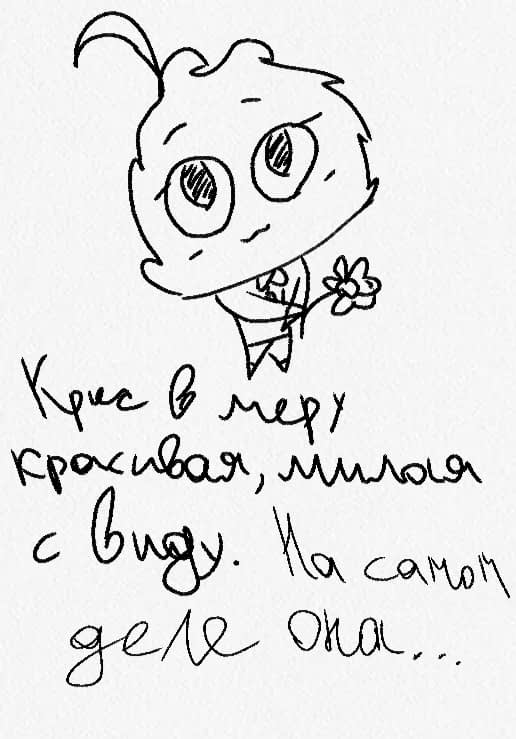 Крис в меру
красивая, милая
с виду. На самом
деле она...